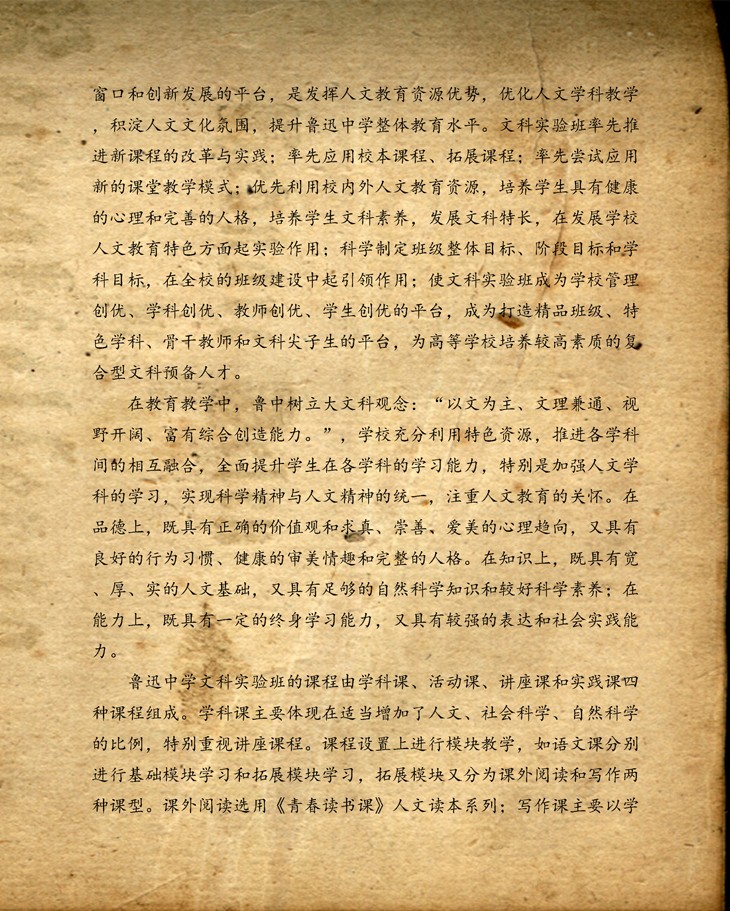 窗口和创新发展的平台，是发挥人文教育资源优势，优化人文学科教学
，积淀人文文化氛围，提升鲁迅中学整体教育水平。文科实验班率先推
进新课程的改革与实践；率先应用校本课程、拓展课程；率先尝试应用
新的课堂教学模式；优先利用校内外人文教育资源，培养学生具有健康
的心理和完善的人格，培养学生文科素养，发展文科特长，在发展学校
人文教育特色方面起实验作用；科学制定班级整体目标、阶段目标和学
科目标，在全校的班级建设中起引领作用；使文科实验班成为学校管理
创优、学科创优、教师创优、学生创优的平台，成为打造精品班级、特
色学科、骨干教师和文科尖子生的平台，为高等学校培养较高素质的复
合型文科预备人才。
在教育教学中，鲁中树立大文科观念：“以文为主、文理兼通、视
野开阔、富有综合创造能力。”，学校充分利用特色资源，推进各学科
间的相互融合，全面提升学生在各学科的学习能力，特别是加强人文学
科的学习，实现科学精神与人文精神的统一，注重人文教育的关怀。在
品德上，既具有正确的价值观和求真、崇善、爱美的心理趋向，又具有
良好的行为习惯、健康的审美情趣和完整的人格。在知识上，既具有宽
、厚、实的人文基础，又具有足够的自然科学知识和较好科学素养；在
能力上，既具有一定的终身学习能力，又具有较强的表达和社会实践能
力。
鲁迅中学文科实验班的课程由学科课、活动课、讲座课和实践课四
种课程组成。学科课主要体现在适当增加了人文、社会科学、自然科学
的比例，特别重视讲座课程。课程设置上进行模块教学，如语文课分别
进行基础模块学习和拓展模块学习，拓展模块又分为课外阅读和写作两
种课型。课外阅读选用《青春读书课》人文读本系列；写作课主要以学